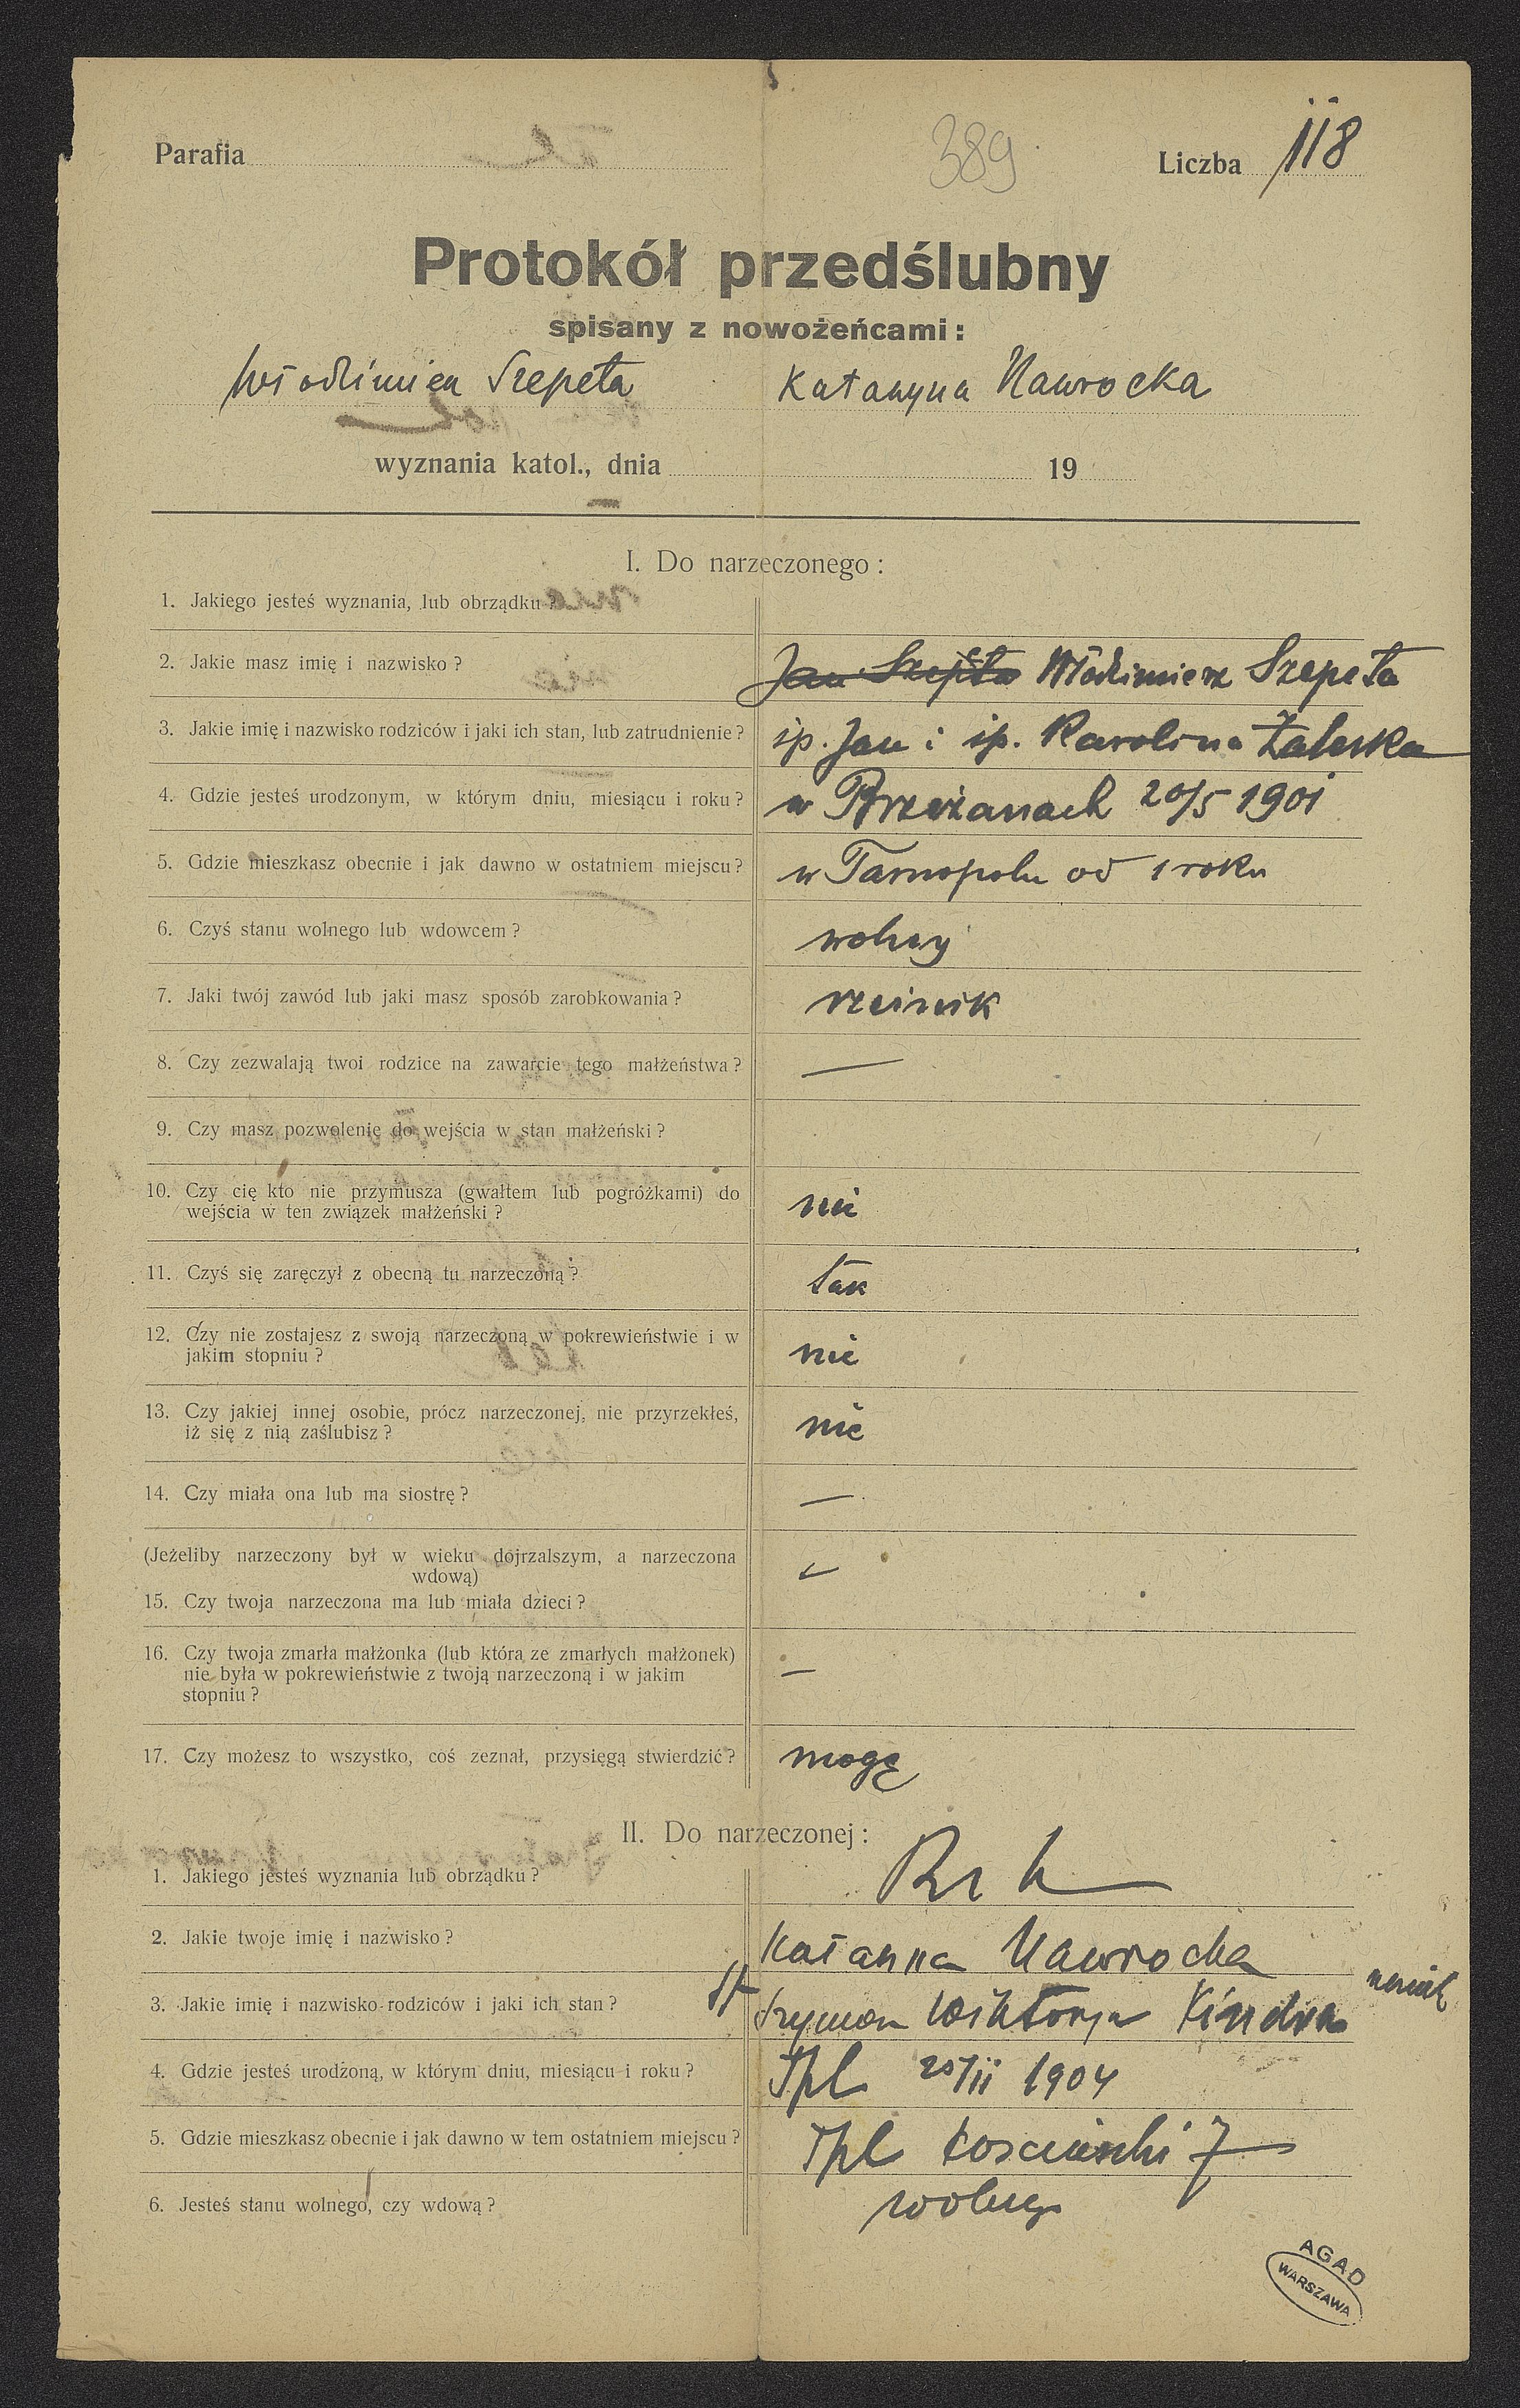 Parafia
389
Liczba 118
Protokół przedślubny
spisany z nowożeńcami:
Włodzimierz Szepeta Katarzyna Nawrocka
wyznania katol., dnia 19
I. Do narzeczonego:
1. Jakiego jesteś wyznania, lub obrządku?
2. Jakie masz imię i nazwisko? Jan Szepeta Włodzimierz Szepeta
3. Jakie imię i nazwisko rodziców i jaki ich stan, lub zatrudnienie? śp. Jan i śp. Karolina Załuska
4. Gdzie jesteś urodzonym, w którym dniu, miesiącu i roku? w Brzeżanach 20/5 1901
5. Gdzie mieszkasz obecnie i jak dawno w ostatniem miejscu? w Tarnopolu od 1 roku
6. Czyś stanu wolnego lub wdowcem? wolny
7. Jaki twój zawód lub jaki masz sposób zarobkowania? rzeźnik
8. Czy zezwalają twoi rodzice na zawarcie tego małżeństwa? —
9. Czy masz pozwolenie do wejścia w stan małżeński?
10. Czy cię kto nie przymusza (gwałtem lub pogróżkami) do
wejścia w ten związek małżeński? nie
11. Czyś się zaręczył z obecną tu narzeczoną? tak
12. Czy nie zostajesz z swoją narzeczoną w pokrewieństwie i w
jakim stopniu? nie
13. Czy jakiej innej osobie, prócz narzeczonej, nie przyrzekłeś,
iż się z nią zaślubisz? nie
14. Czy miała ona lub ma siostrę? —
(Jeżeliby narzeczony był w wieku dojrzalszym, a narzeczona
wdową) —
15. Czy twoja narzeczona ma lub miała dzieci?
16. Czy twoja zmarła małżonka (lub która ze zmarłych małżonek)
nie była w pokrewieństwie z twoją narzeczoną i w jakim —
stopniu?
17. Czy możesz to wszystko, coś zeznał, przysięgą stwierdzić? mogę
II. Do narzeczonej:
1. Jakiego jesteś wyznania lub obrządku? Rz k
2. Jakie twoje imię i nazwisko? Katarzyna Nawrocka
3. Jakie imię i nazwisko rodziców i jaki ich stan? Szymon Wiktorja Kindra
4. Gdzie jesteś urodzoną, w którym dniu, miesiącu i roku? Tpl 20/ii 1904
5. Gdzie mieszkasz obecnie i jak dawno w tem ostatniem miejscu? Tpl Kościuszki 7
6. Jesteś stanu wolnego, czy wdową? wolny
AGAD
WARSZAWA